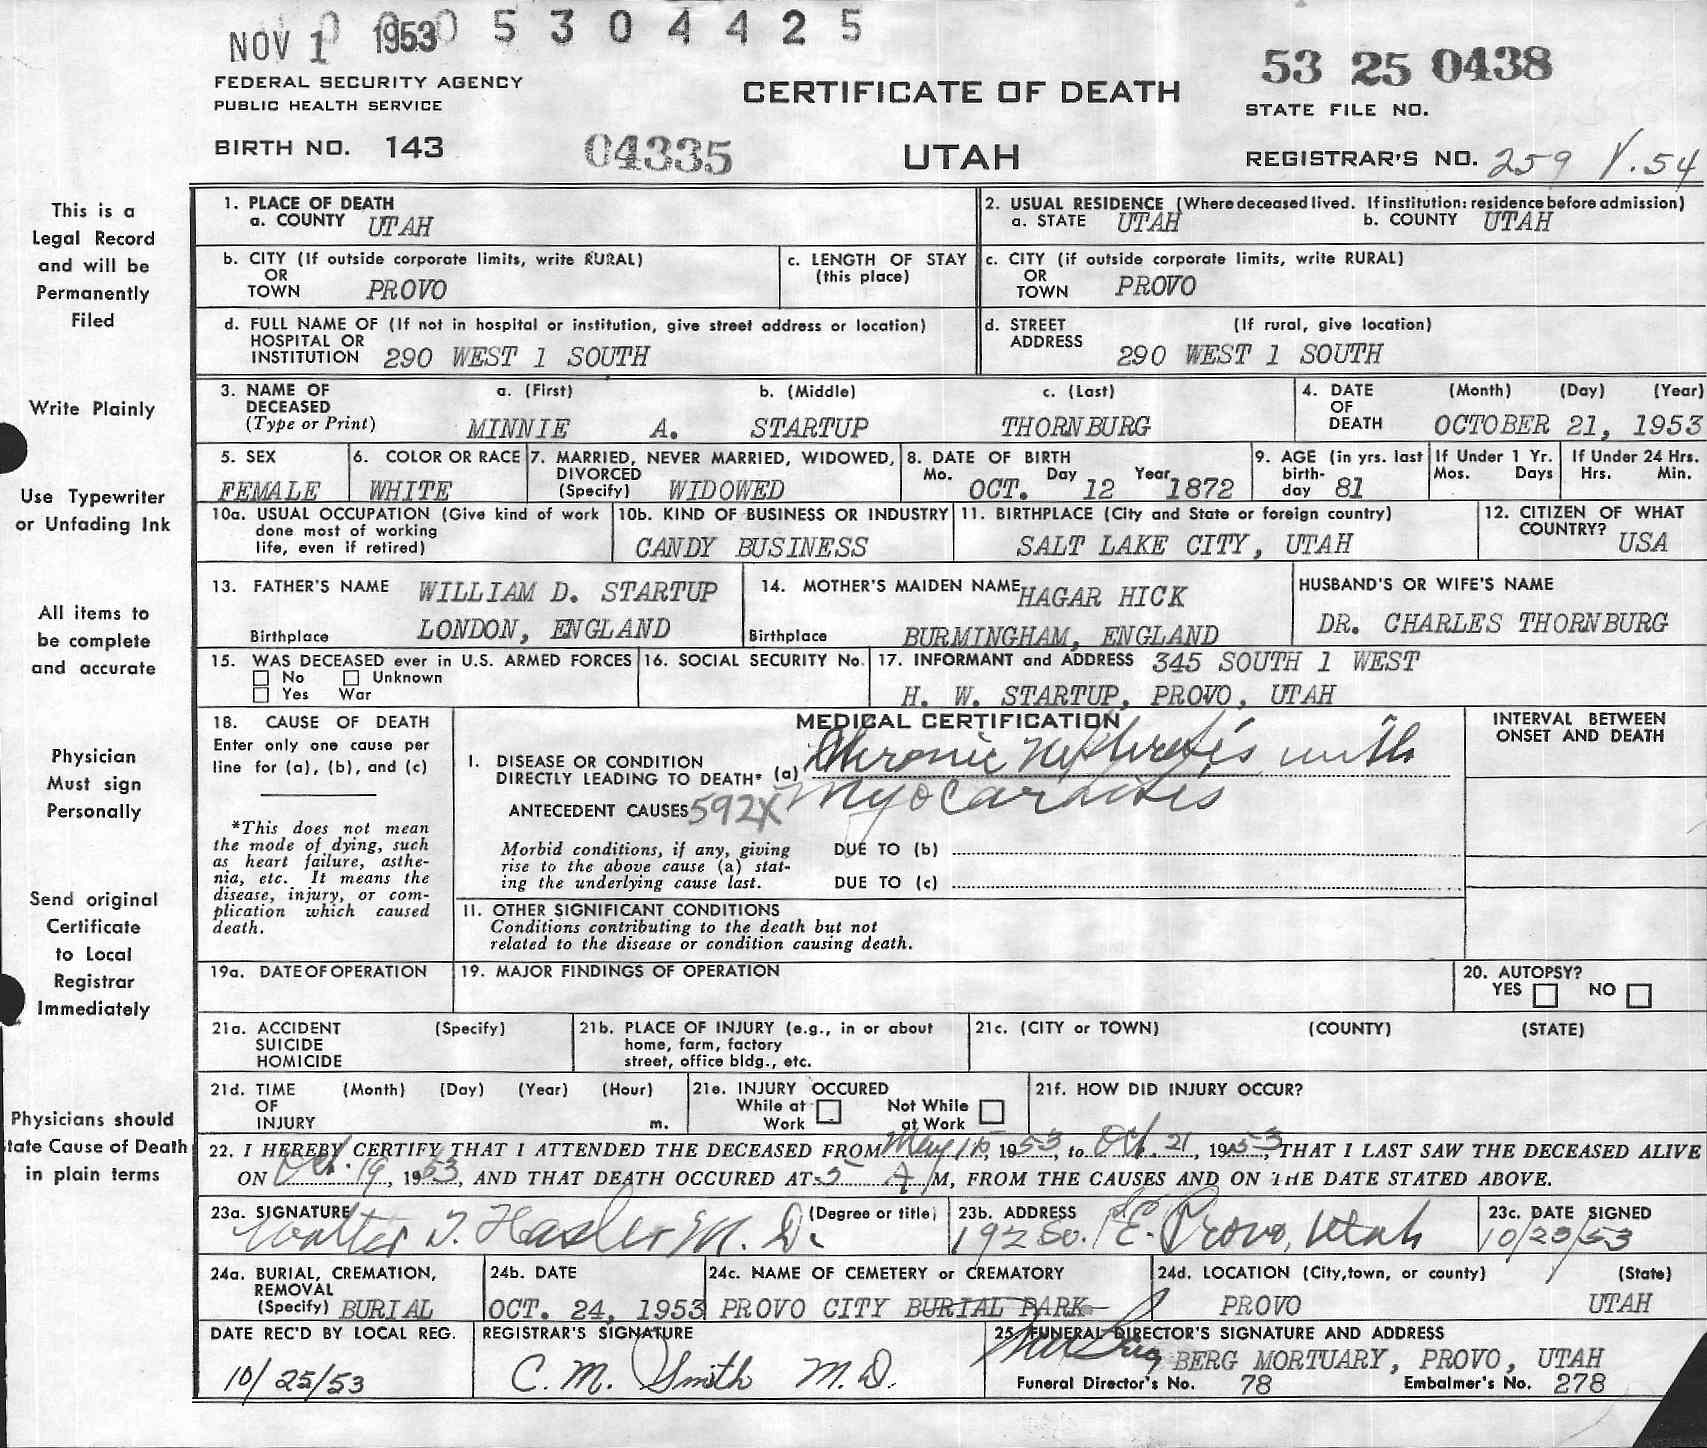 NOV 10 1953 0 5 3 0 4 4 2 5
53 25 0438
FEDERAL SECURITY AGENCY
PUBLIC HEALTH SERVICE
CERTIFICATE OF DEATH
STATE FILE NO.
BIRTH NO. 143
04335
UTAH
REGISTRAR'S NO. 259
This is a
Legal Record
and will be
Permanently
Filed
Write Plainly
Use Typewriter
or Unfading Ink
All items to
be complete
and accurate
Physician
Must sign
Personally
Send original
Certificate
to Local
Registrar
Immediately
Physicians should
tate Cause of Death
in plain terms
1. PLACE OF DEATH
a. COUNTY UTAH
2. USUAL RESIDENCE (Where deceased lived. If institution: residence before admission)
a. STATE UTAH b. COUNTY UTAH
b. CITY (If outside corporate limits, write RURAL)
OR
TOWN PROVO
c. LENGTH OF STAY
(this place)
c. CITY (if outside corporate limits, write RURAL)
OR
TOWN PROVO
d. FULL NAME OF (If not in hospital or institution, give street address or location)
HOSPITAL OR
INSTITUTION 290 WEST 1 SOUTH
d. STREET (If rural, give location)
ADDRESS
290 WEST 1 SOUTH
3. NAME OF a. (First) b. (Middle) c. (Last)
DECEASED
(Type or Print) MINNIE A. STARTUP THORNBURG
4. DATE (Month) (Day) (Year)
OF
DEATH OCTOBER 21, 1953
5. SEX
FEMALE
6. COLOR OR RACE
WHITE
7. MARRIED, NEVER MARRIED, WIDOWED,
DIVORCED
(Specify) WIDOWED
8. DATE OF BIRTH
Mo. Day Year
OCT. 12 1872
9. AGE (in yrs. last
birth-
day 81
If Under 1 Yr.
Mos. Days
If Under 24 Hrs.
Hrs. Min.
10a. USUAL OCCUPATION (Give kind of work
done most of working
life, even if retired)
10b. KIND OF BUSINESS OR INDUSTRY
CANDY BUSINESS
11. BIRTHPLACE (City and State or foreign country)
SALT LAKE CITY, UTAH
12. CITIZEN OF WHAT
COUNTRY? USA
13. FATHER'S NAME WILLIAM D. STARTUP
Birthplace LONDON, ENGLAND
14. MOTHER'S MAIDEN NAME HAGAR HICK
Birthplace BURMINGHAM, ENGLAND
HUSBAND'S OR WIFE'S NAME
DR. CHARLES THORNBURG
15. WAS DECEASED ever in U.S. ARMED FORCES
No Unknown
Yes War
16. SOCIAL SECURITY No.
17. INFORMANT and ADDRESS 345 SOUTH 1 WEST
H. W. STARTUP, PROVO, UTAH
18. CAUSE OF DEATH
Enter only one cause per
line for (a), (b), and (c)
*This does not mean
the mode of dying, such
as heart failure, asthe-
nia, etc. It means the
disease, injury, or com-
plication which caused
death.
MEDICAL CERTIFICATION
I. DISEASE OR CONDITION
DIRECTLY LEADING TO DEATH* (a) Chronic Nephritis with
ANTECEDENT CAUSES 592X Myocarditis
Morbid conditions, if any, giving
rise to the above cause (a) stat-
ing the underlying cause last.
DUE TO (b)
DUE TO (c)
II. OTHER SIGNIFICANT CONDITIONS
Conditions contributing to the death but not
related to the disease or condition causing death.
INTERVAL BETWEEN
ONSET AND DEATH
19a. DATE OF OPERATION
19. MAJOR FINDINGS OF OPERATION
20. AUTOPSY?
YES NO
21a. ACCIDENT (Specify)
SUICIDE
HOMICIDE
21b. PLACE OF INJURY (e.g., in or about
home, farm, factory
street, office bldg., etc.
21c. (CITY or TOWN) (COUNTY) (STATE)
21d. TIME (Month) (Day) (Year) (Hour)
OF
INJURY m.
21e. INJURY OCCURED
While at Work
Not While at Work
21f. HOW DID INJURY OCCUR?
22. I HEREBY CERTIFY THAT I ATTENDED THE DECEASED FROM May 15, 1953, to Oct. 21, 1953, THAT I LAST SAW THE DECEASED ALIVE
ON Oct. 19, 1953, AND THAT DEATH OCCURED AT 5 A M, FROM THE CAUSES AND ON THE DATE STATED ABOVE.
23a. SIGNATURE (Degree or title)
Walter T. Hasler M. D.
23b. ADDRESS
192 So. 1st E. Provo, Utah
23c. DATE SIGNED
10/23/53
24a. BURIAL, CREMATION,
REMOVAL
(Specify) BURIAL
24b. DATE
OCT. 24, 1953
24c. NAME OF CEMETERY or CREMATORY
PROVO CITY BURIAL PARK
24d. LOCATION (City, town, or county) (State)
PROVO UTAH
DATE REC'D BY LOCAL REG.
10/25/53
REGISTRAR'S SIGNATURE
C. M. Smith M.D.
25. FUNERAL DIRECTOR'S SIGNATURE AND ADDRESS
BERG MORTUARY, PROVO, UTAH
Funeral Director's No. 78 Embalmer's No. 278